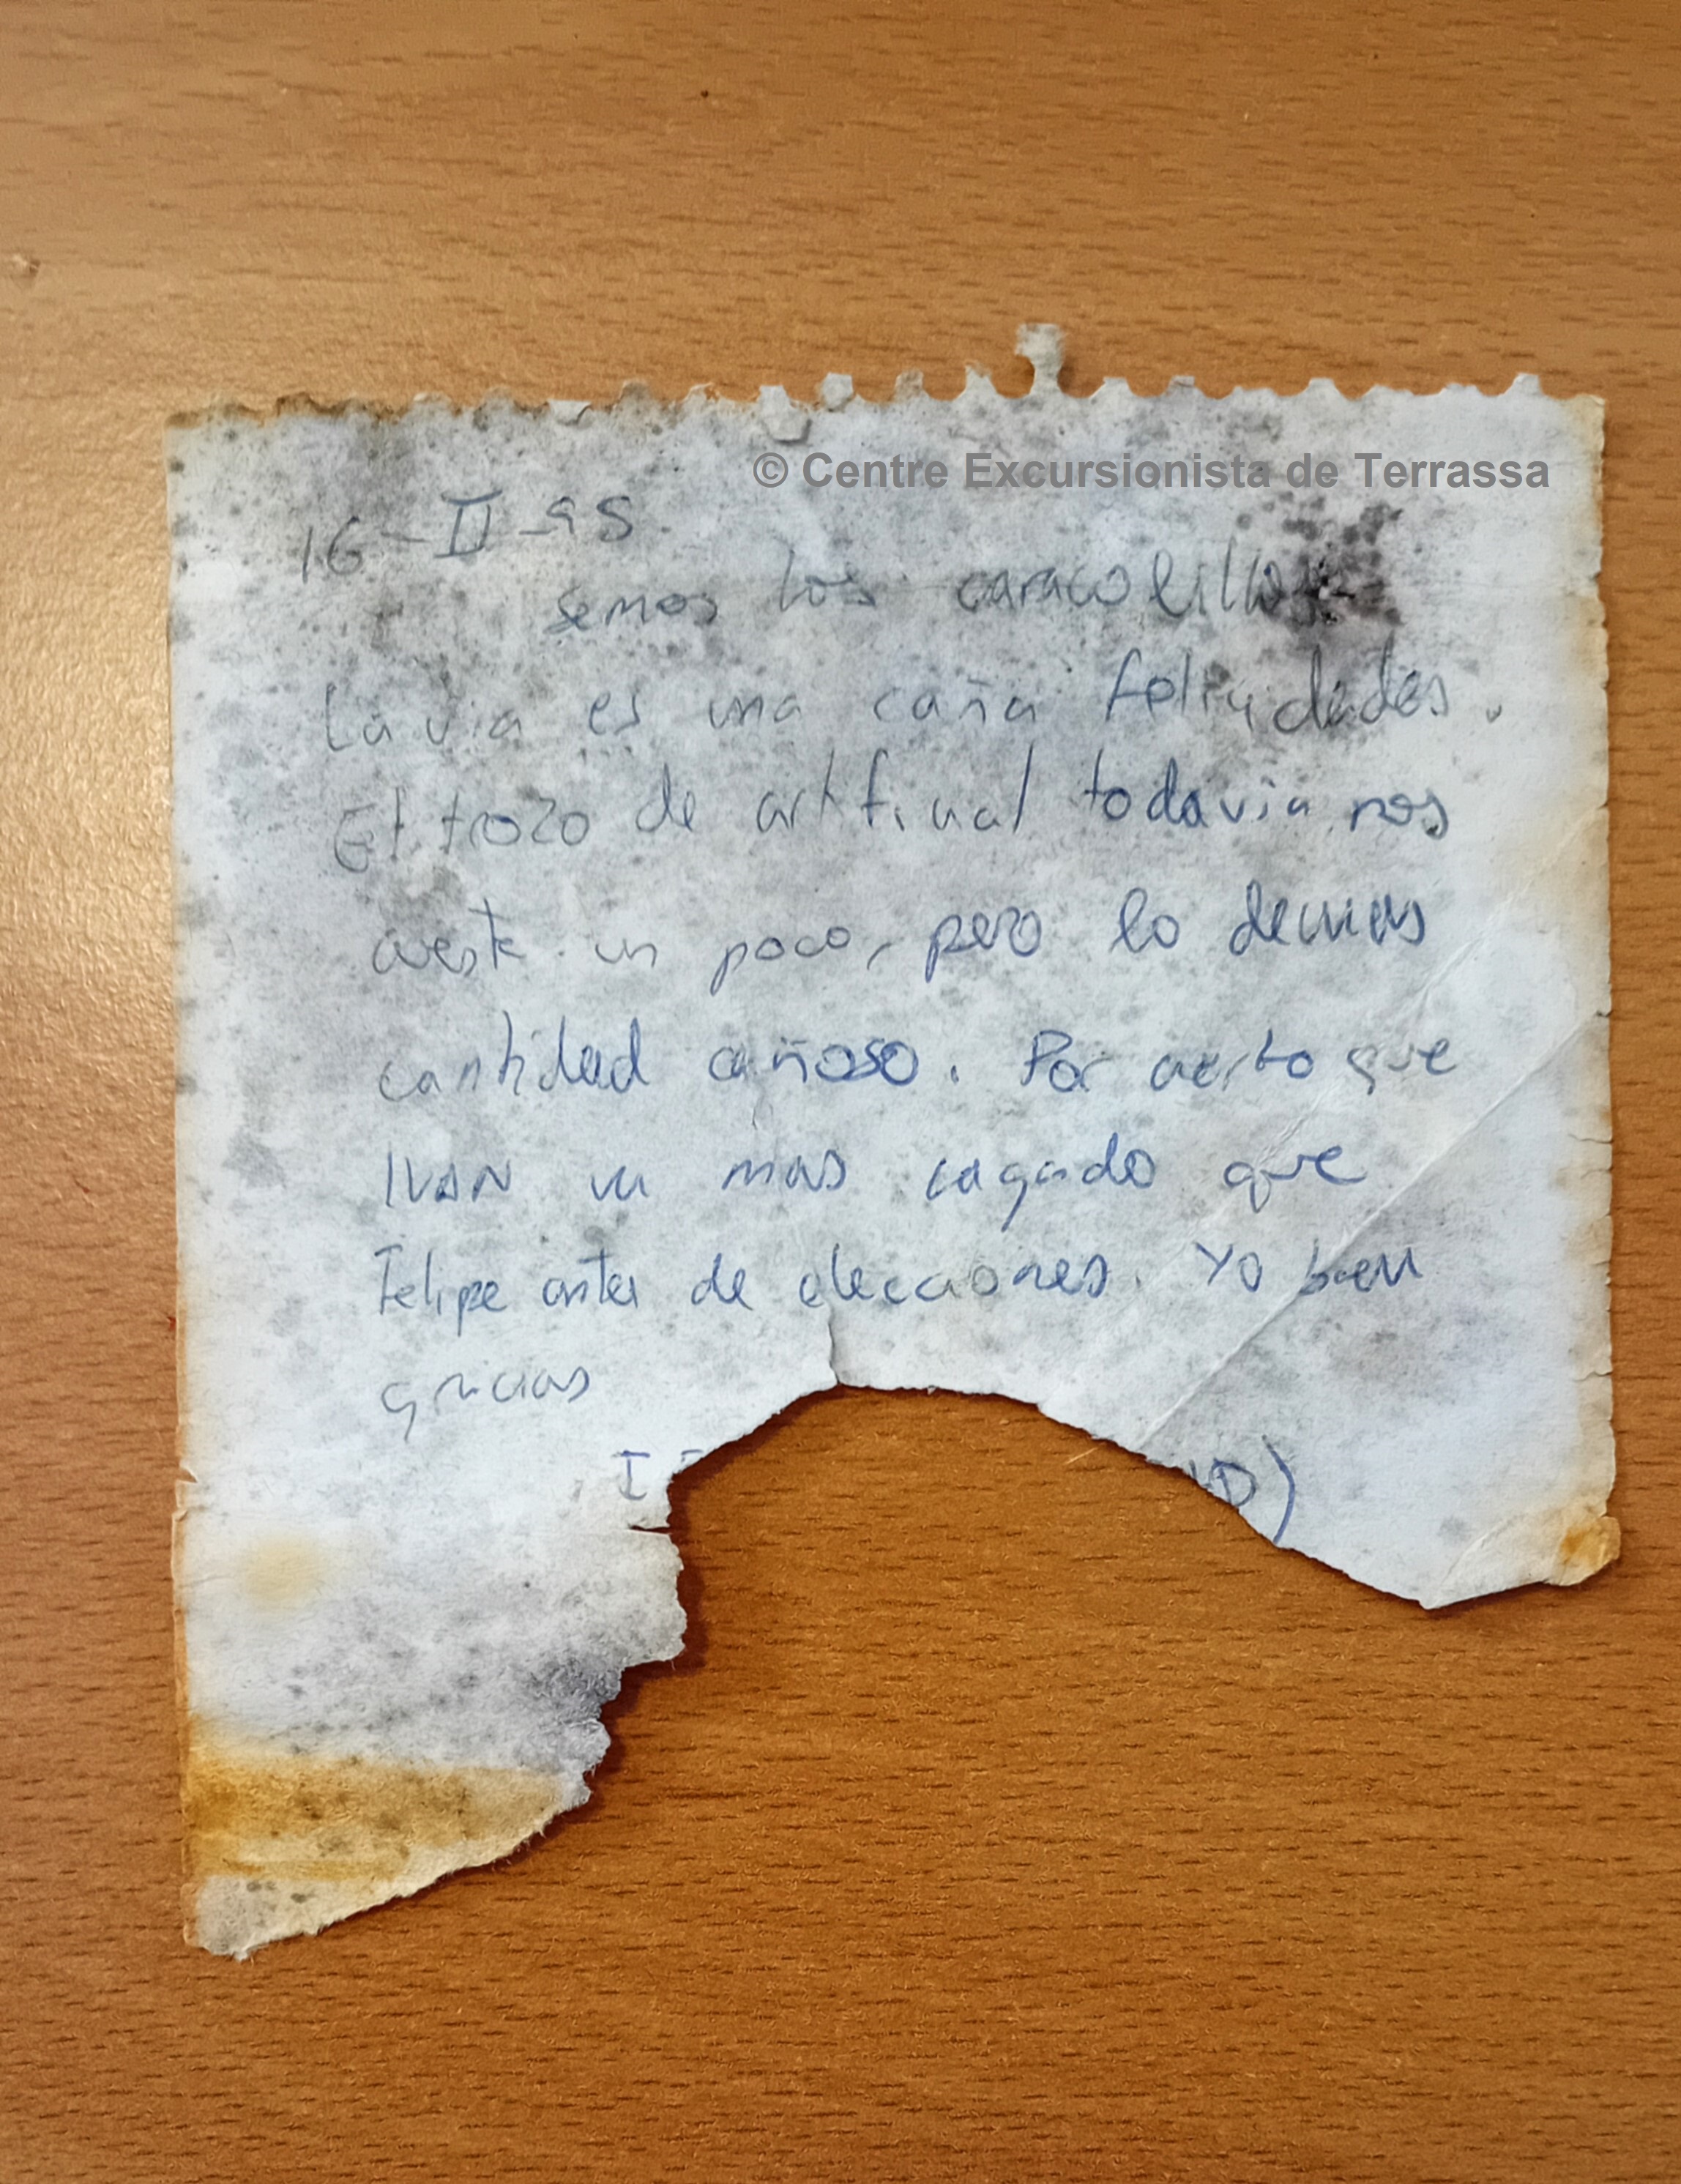 © Centre Excursionista de Terrassa
16-II-95.
semos los caracolillos
La via es una caña felicidades.
El trozo de artificial todavia nos
cuesta un poco, pero lo demas
cantidad cañoso. Por cierto que
IVAN va mas cagado que
Felipe antes de elecciones. Yo bien
gracias